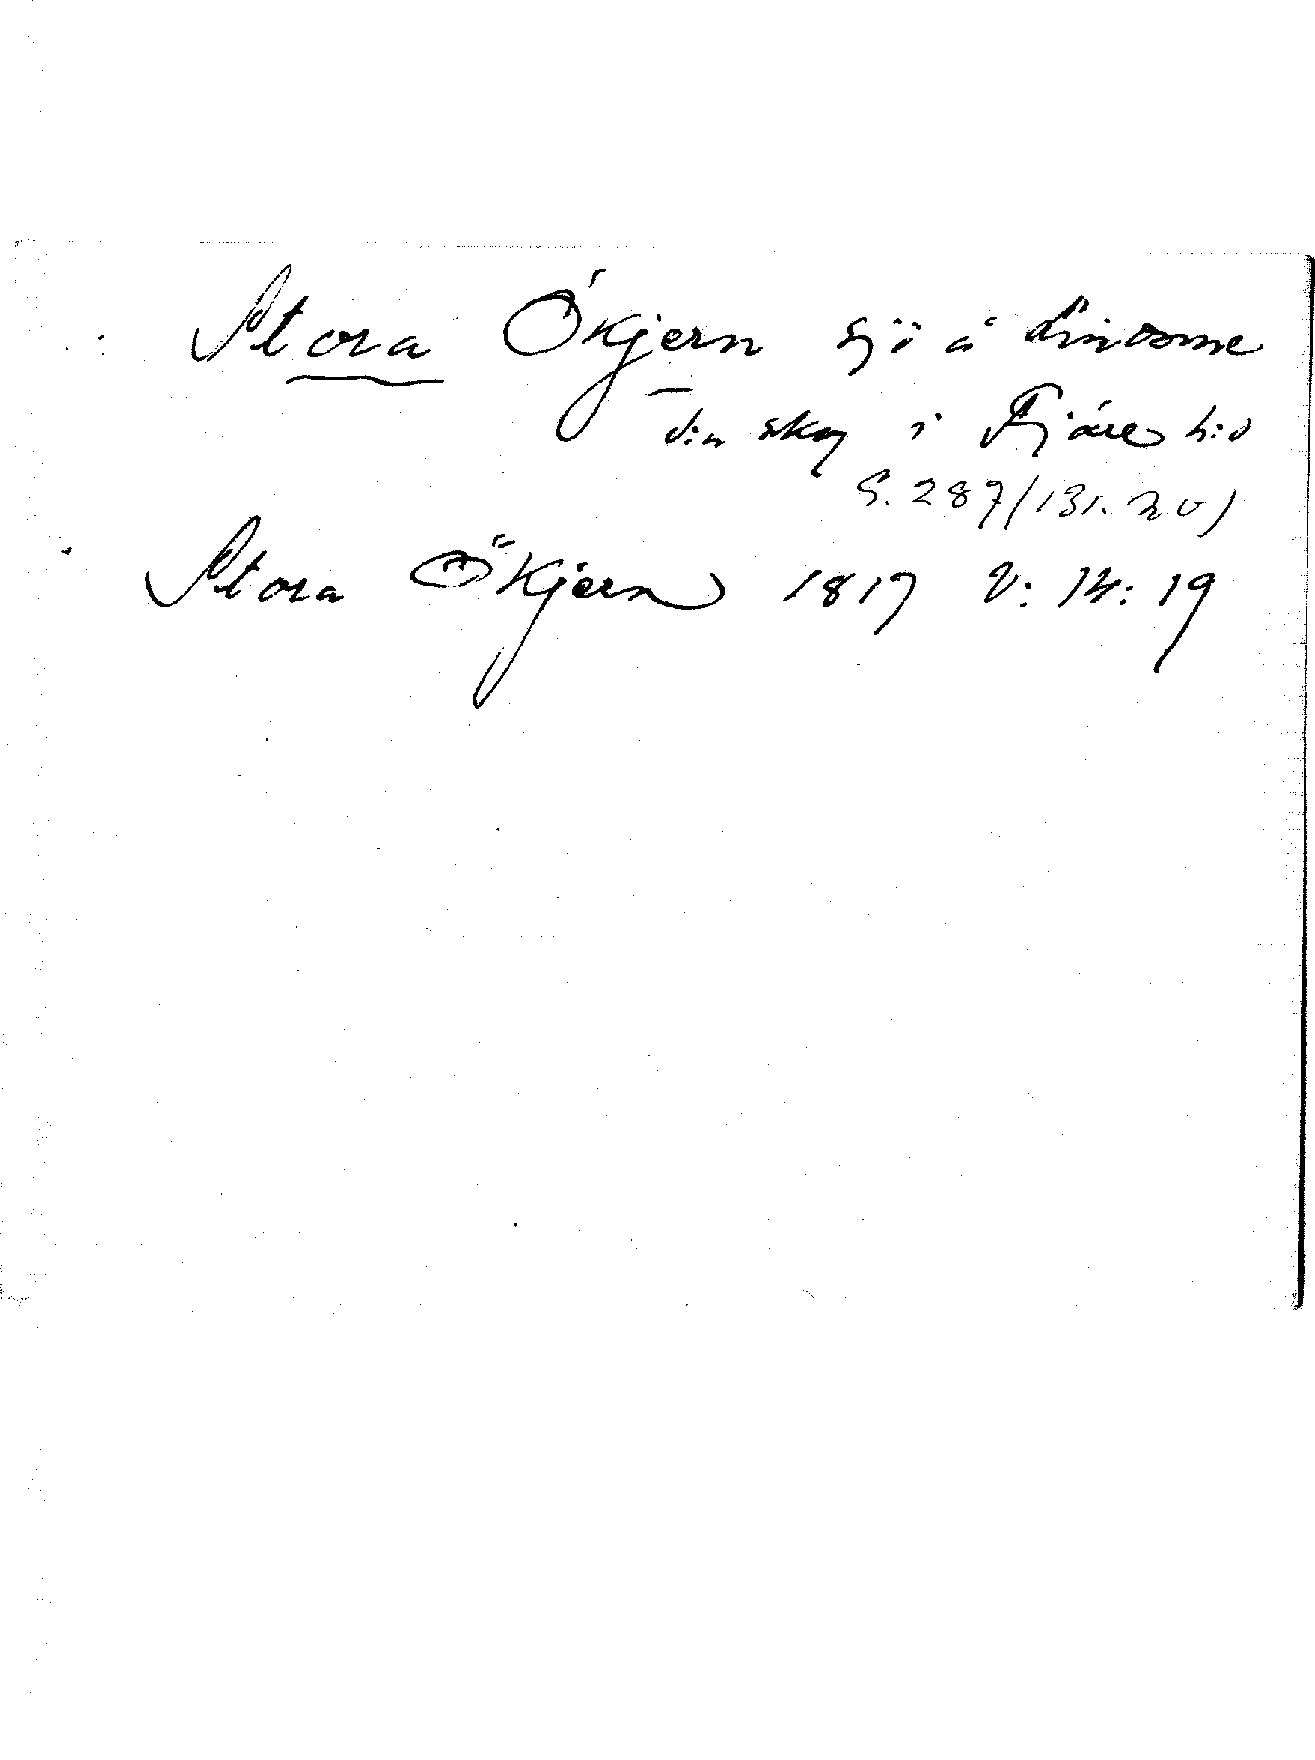 Stora Ökjern sjö å Lindome
s:n skog i Fjäre h:d
S. 287/131. 20)
Stora Ökjern 1817 V: 14: 19